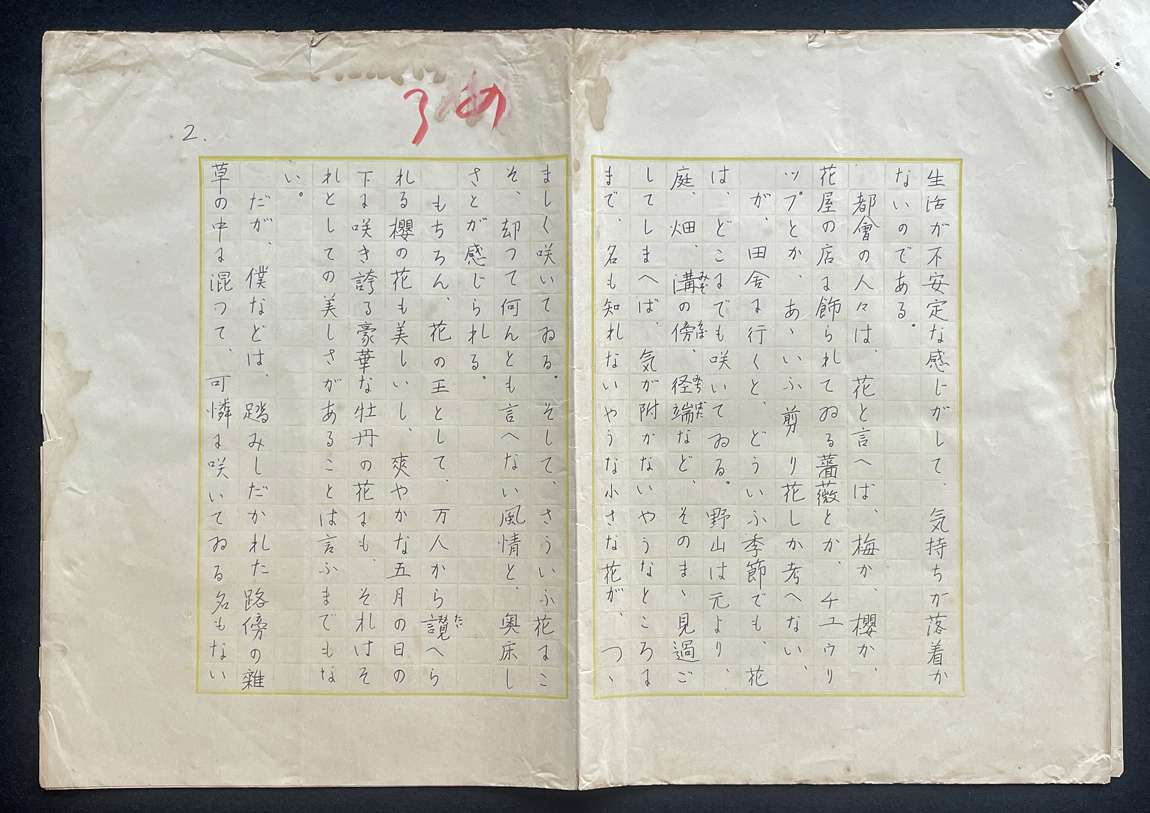 2.
生活が不安定な感じがして、気持ちが落着か
ないのである。
都會の人々は、花と言へば、梅か、櫻か、
花屋の店に飾られてゐる薔薇とか、チユウリ
ップとか、あゝいふ剪り花しか考へない、
が、田舎に行くと、どういふ季節でも、花
は、どこまでも咲いてゐる。野山は元より、
庭、畑、溝の傍、径端など、そのまゝ見過ご
してしまへば、気が附かないやうなところに
まで、名も知れないやうな小さな花が、つゝ
ましく咲いてゐる。そして、さういふ花にこ
そ、却つて何んとも言へない風情と、奥床し
さとが感じられる。
もちろん、花の王として、万人から讃へら
れる櫻の花も美しいし、爽やかな五月の日の
下に咲き誇る豪華な牡丹の花にも、それはそ
れとしての美しさがあることは言ふまでもな
い。
だが、僕などは、踏みしだかれた路傍の雜
草の中に混つて、可憐に咲いてゐる名もない